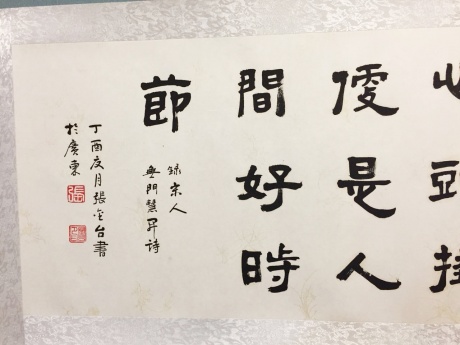 心頭掛
便是人
間好時
節
錄宋人
無門慧开詩
丁酉夏月張台書
於廣東
張